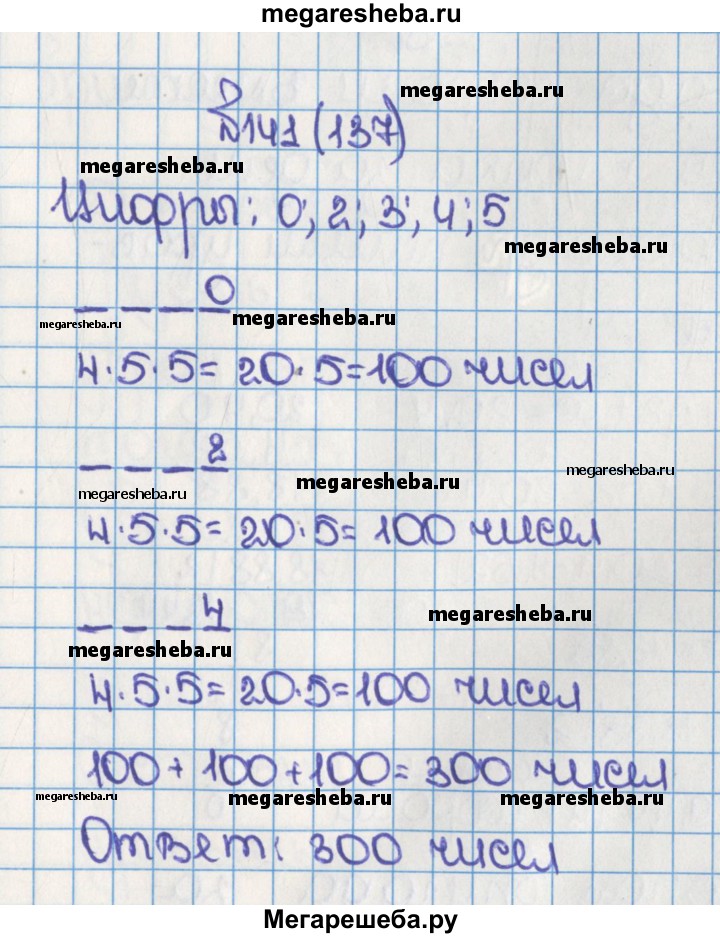 megaresheba.ru
megaresheba.ru
№141 (137)
megaresheba.ru
Цифры: 0; 2; 3; 4; 5
megaresheba.ru
_ _ _ 0
megaresheba.ru megaresheba.ru
4·5·5= 20·5=100 чисел
_ _ _ 2
megaresheba.ru megaresheba.ru megaresheba.ru
4·5·5= 20·5= 100 чисел
_ _ _ 4
megaresheba.ru
megaresheba.ru
4·5·5= 20·5=100 чисел
100+100+100= 300 чисел
megaresheba.ru megaresheba.ru megaresheba.ru
Ответ: 300 чисел
Мегарешеба.ру